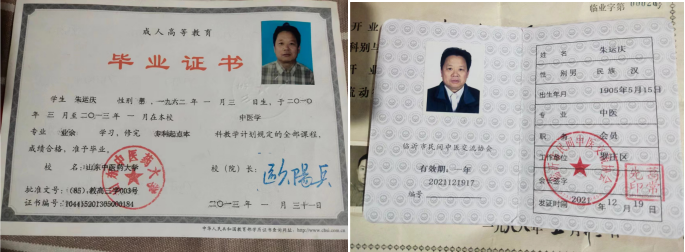 成人高等教育
毕业证书
学生 朱运庆 性别 男，一九六二年 一月 三 日生，于二〇一〇
年 三月至二〇一三年 一月在本校 中医学
专业 业余 学习，修完 专科起点本 科教学计划规定的全部课程，
成绩合格，准予毕业。
校 名：山东中医药大学 校（院）长：
批准文号：(85)教高三字003号
证书编号：104415201305000184 二〇一三年 一月 三十一日
中华人民共和国教育部学历证书查询网址：http://www.chsi.com.cn
临业字第
开业
科别与
流动
临沂市民间中医交流协会
有效期：一年
2021121917
编号
姓名 朱运庆
性别 男 民族 汉
出生年月 1905年5月15日
专业 中医
职务 会员
工作单位 罗庄区
会长签字
发证时间 2021 年 12 月 19 日